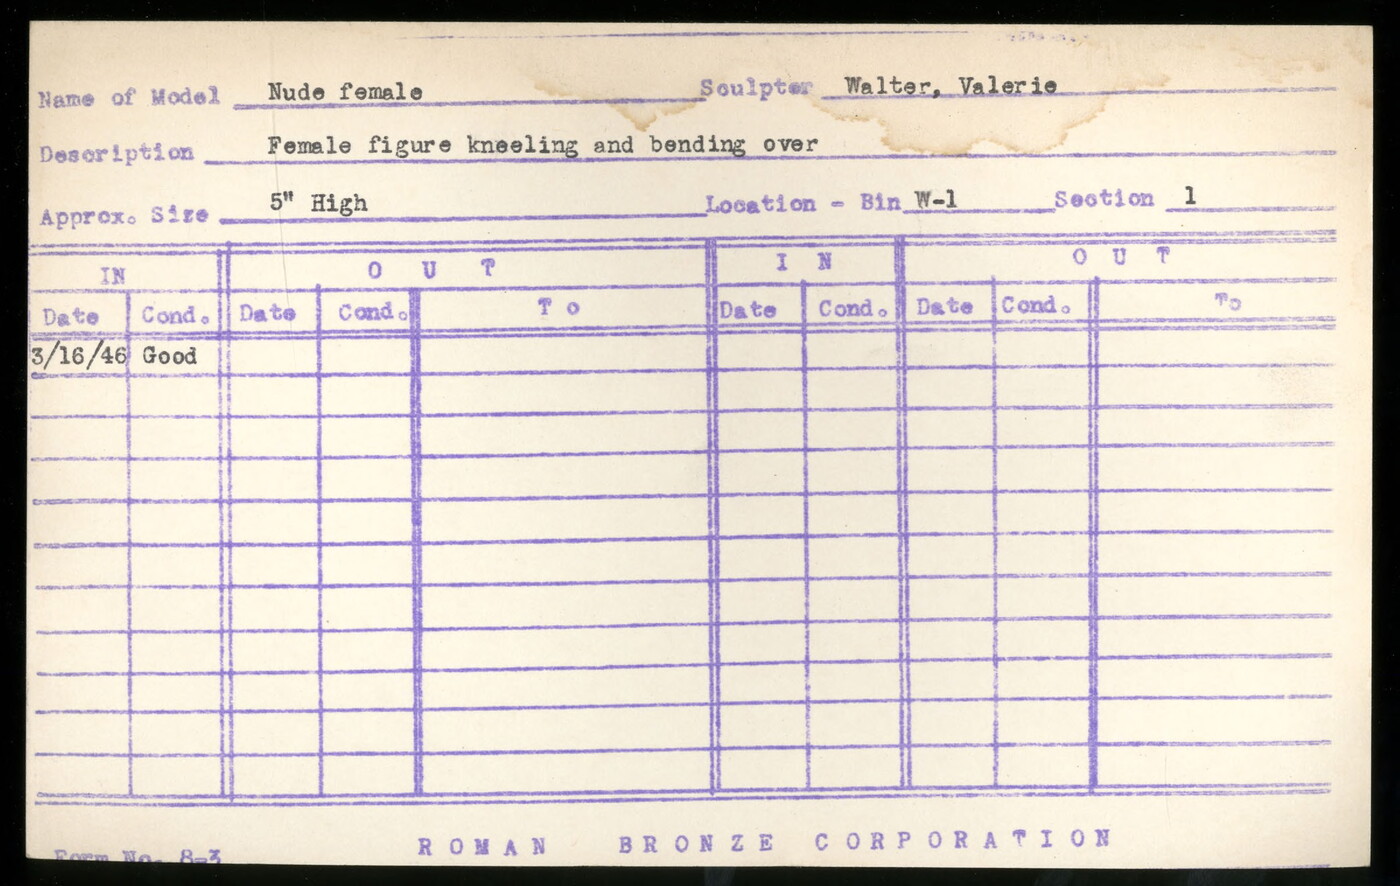 Name of Model Nude female Sculptor Walter, Valerie
Description Female figure kneeling and bending over
Approx. Size 5" High Location - Bin W-1 Section 1
IN O U T I N O U T
Date Cond. Date Cond. T o Date Cond. Date Cond. To
3/16/46 Good
Form No. 8-3 ROMAN BRONZE CORPORATION